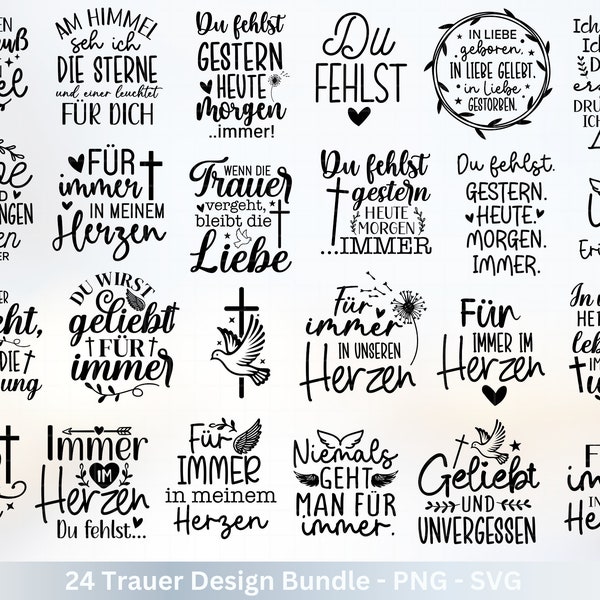 AM HIMMEL
seh ich
DIE STERNE
und einer leuchtet
FÜR DICH
Du fehlst
GESTERN
HEUTE
Morgen
..immer!
Du
FEHLST
IN LIEBE
geboren,
IN LIEBE GELEBT.
in Liebe
GESTORBEN.
FÜR
immer
IN MEINEM
Herzen
WENN DIE
Trauer
vergeht,
bleibt die
Liebe
Du fehlst
gestern
HEUTE
MORGEN
...IMMER
Du fehlst.
GESTERN.
HEUTE.
MORGEN.
IMMER.
DU WIRST
geliebt
FÜR
immer
Für
immer
IN UNSEREN
Herzen
Für
IMMER IM
Herzen
Immer
IM
Herzen
Du fehlst...
Für
IMMER
in meinem
Herzen
Niemals
GEHT
MAN FÜR
immer.
Geliebt
UND
UNVERGESSEN
24 Trauer Design Bundle - PNG - SVG